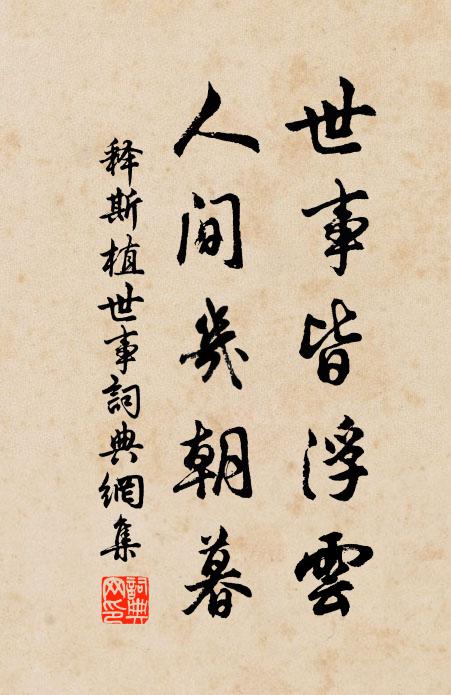 世事皆浮雲
人间幾朝暮
释斯植世事詞典網集
詞典网印